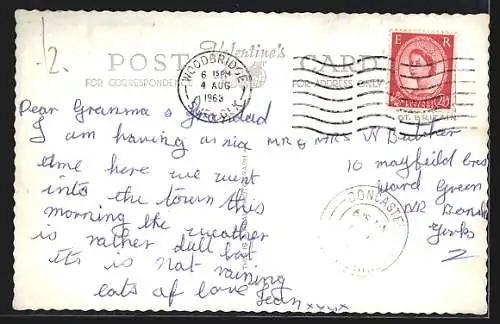 /2.
POST Valentine's CARD
FOR CORRESPONDENCE FOR ADDRESS ONLY
WOODBRIDGE
6 15PM
4 AUG
1963
SUFFOLK
E R
Dear Granma & Grandad
I am having a nice
time here we went
into the town this
morning the weather
is rather dull but
its is not raining
lots of love
Jean xxxx
MR & MRS W Butcher
10 mayfeild Cres
ward Green
NR
Yorks
2
DONCASTE